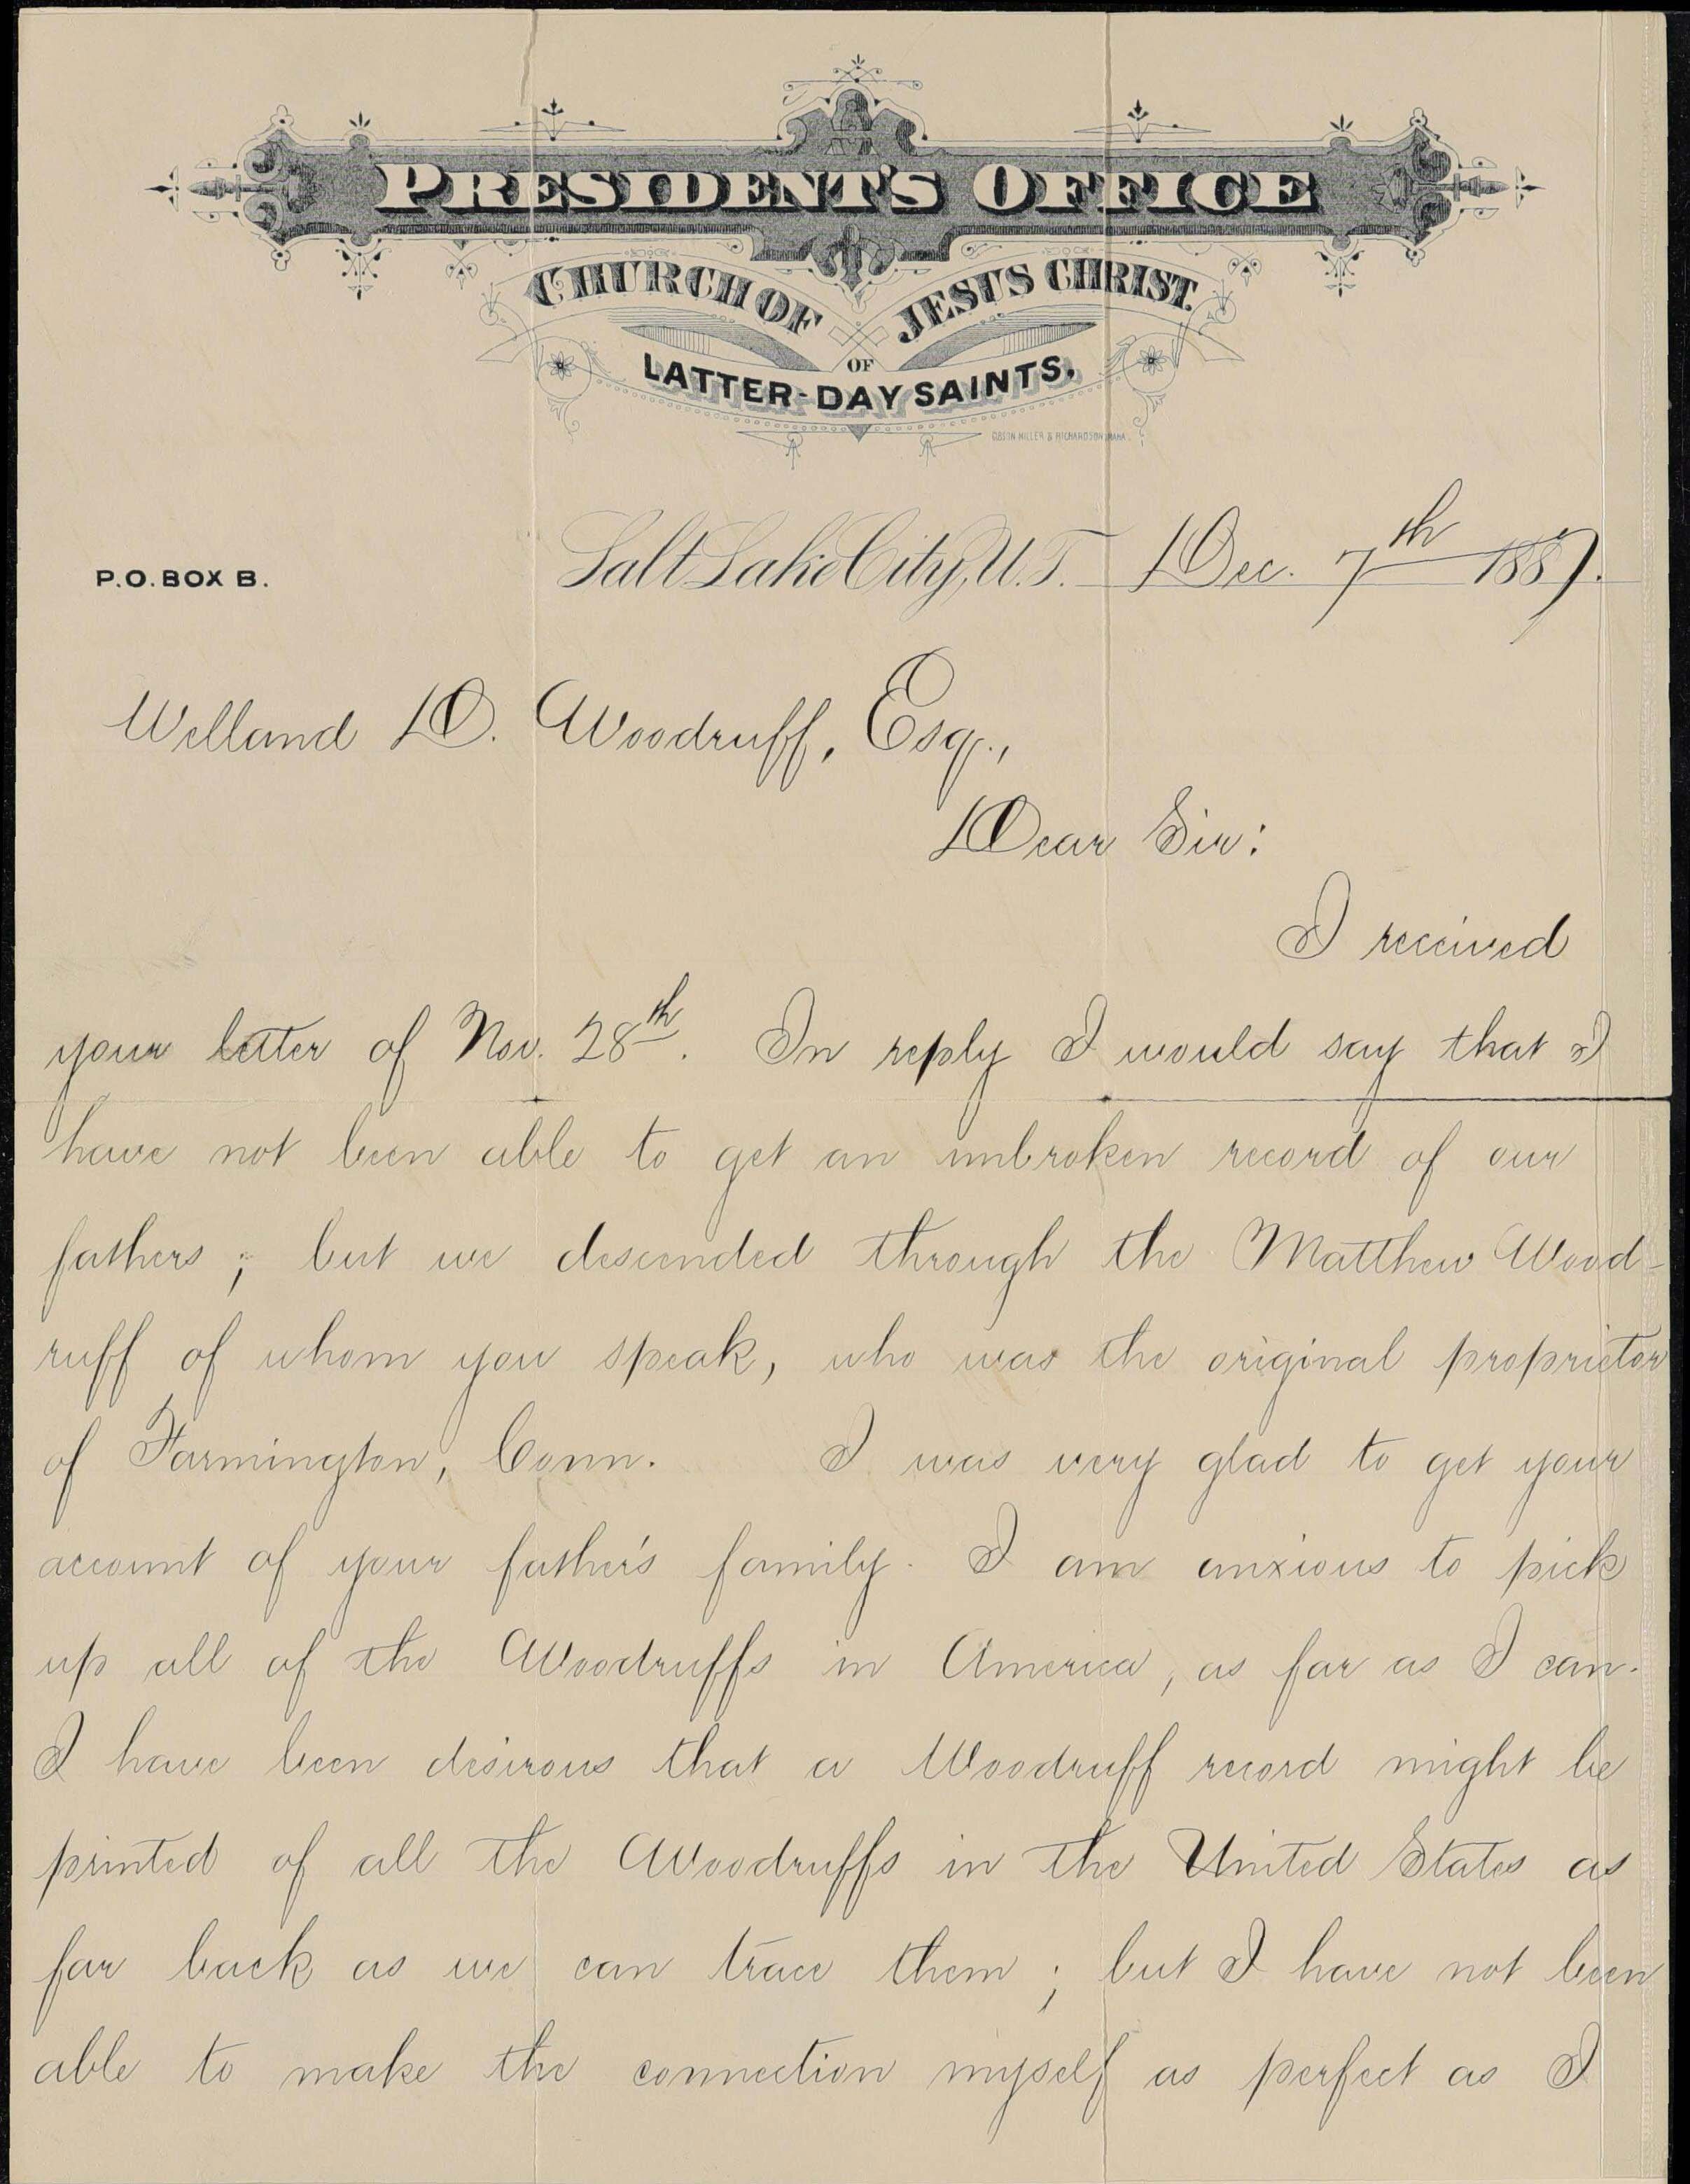 PRESIDENT'S OFFICE
CHURCH OF JESUS CHRIST
OF
LATTER-DAY SAINTS.
GIBSON MILLER & RICHARDSON OMAHA.
P.O. BOX B.
Salt Lake City, U.T. Dec. 7th 1887.
Welland D. Woodruff, Esq.,
Dear Sir:
I received
your letter of Nov. 28th. In reply I would say that I
have not been able to get an unbroken record of our
fathers; but we descended through the Matthew Wood-
ruff of whom you speak, who was the original proprietor
of Farmington, Conn. I was very glad to get your
account of your father's family. I am anxious to pick
up all of the Woodruffs in America, as far as I can.
I have been desirous that a Woodruff record might be
printed of all the Woodruffs in the United States as
far back as we can trace them; but I have not been
able to make the connection myself as perfect as I